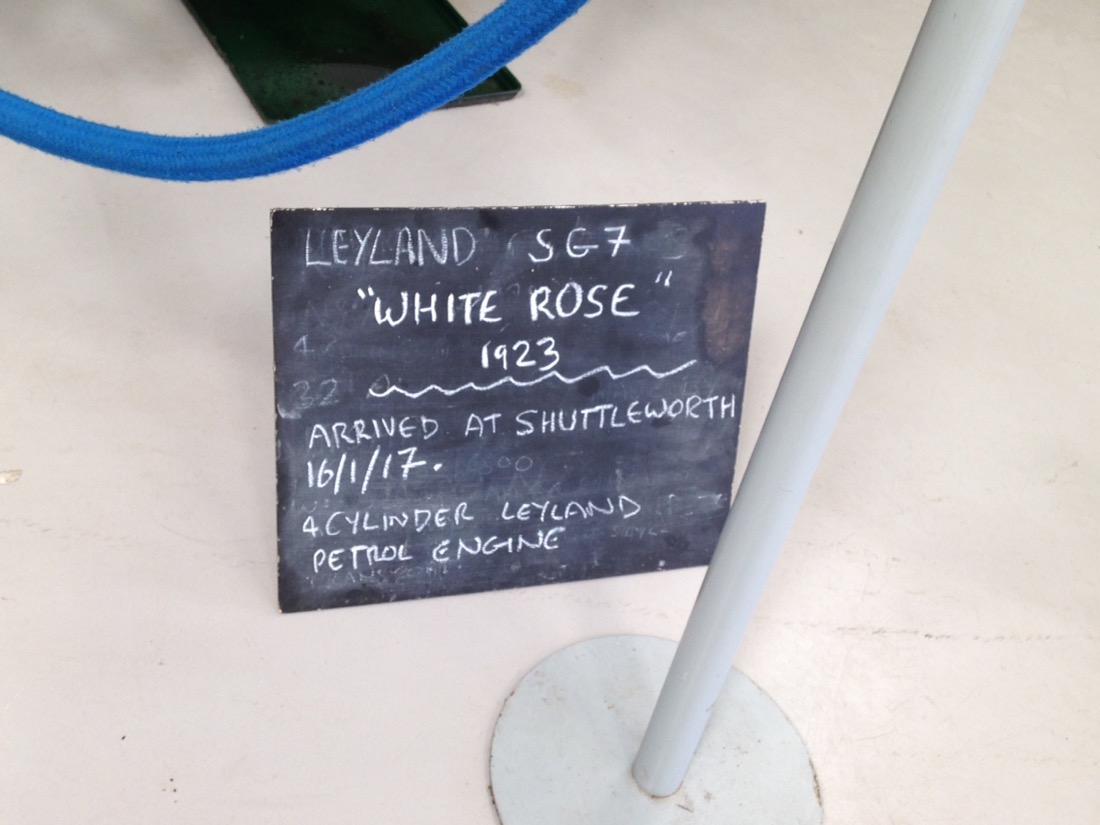 LEYLAND SG7
"WHITE ROSE"
1923
ARRIVED AT SHUTTLEWORTH
16/1/17.
4 CYLINDER LEYLAND
PETROL ENGINE